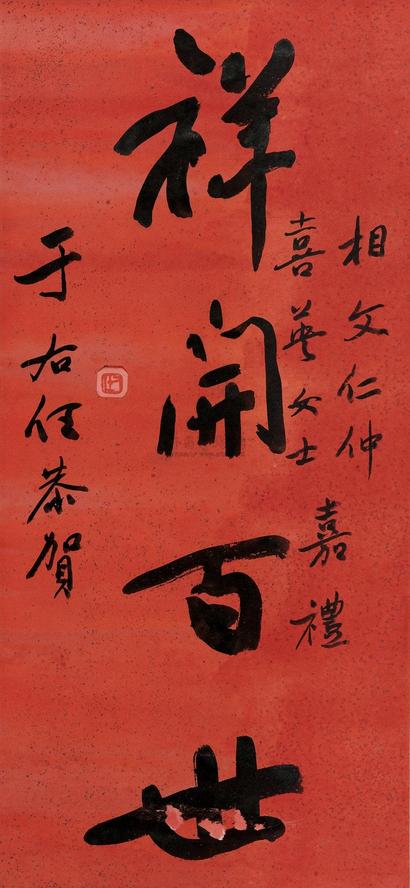 相文仁仲
喜英女士
嘉禮
祥開百世
于右任恭賀